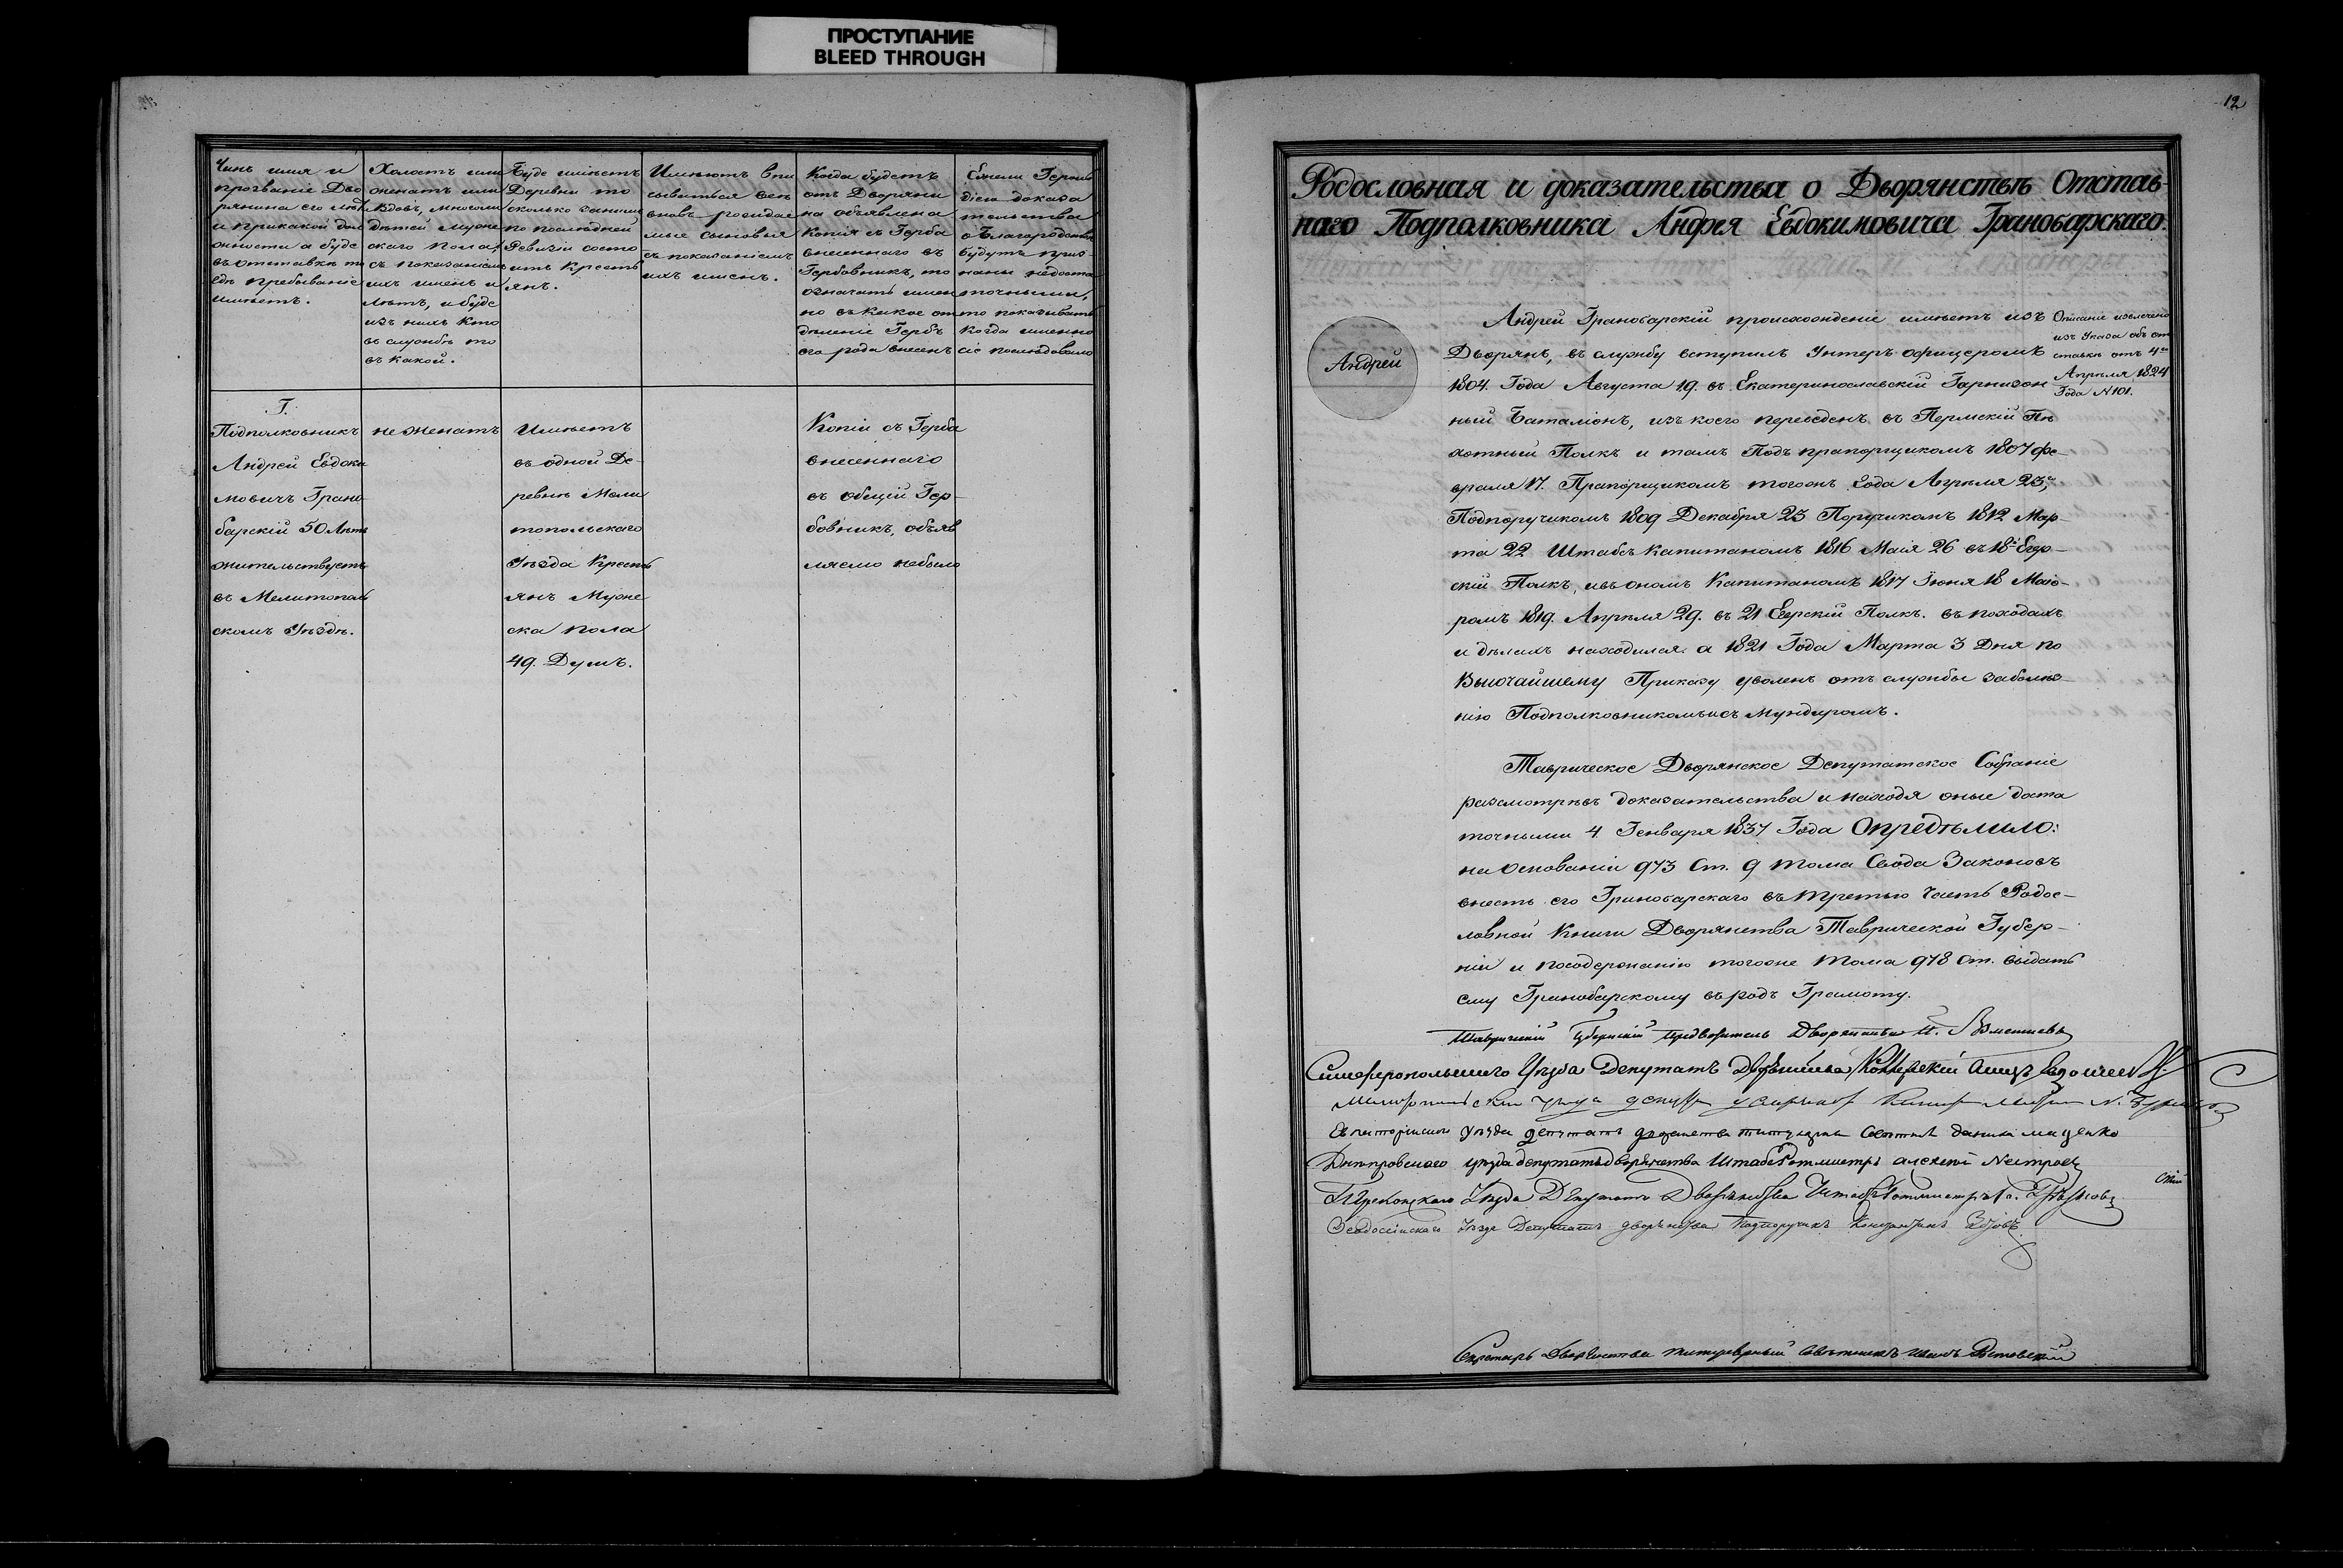 ПРОСТУПАНИЕ
BLEED THROUGH
Чинъ имя и
прозваніе Дво
рянина его лѣта
и прикакой дол
жности а буде
въ отставкѣ то
гдѣ пребываніе
имѣетъ.
Холостъ или
женатъ или
Вдовъ, многоли
дѣтей мужес
скаго пола,
съ показаніемъ
ихъ именъ и
лѣтъ, и буде
изъ нихъ кто
въ службѣ то
въ какой.
Буде имѣетъ
Деревни то
сколько заними
по послѣдней
Ревизіи состо
итъ Кресть
янъ.
Имѣютъ впи
сываться вси
вновь рождае
мые сыновья
съ показаніемъ
ихъ именъ.
Когда будетъ
отъ Дворяни
на объявлена
Копія съ Герба
внесеннаго въ
Гербовникъ, то
означать имен
но въ какое от
дѣленіе Гербъ
его рода внесенъ
Ежели Герольд
діею доказа
тельства
о благородствѣ
будутъ приз
наны недоста
точными,
то показывать
когда именно
сіе послѣдовало
Г.
Подполковникъ
Андрей Евдоки
мовичъ Грано
барскій 50 Лѣтъ
жительствуетъ
въ Мелитополь
скомъ Уѣздѣ.
не женатъ
Имѣетъ
въ одной Де-
ревнѣ Мели
топольскаго
Уѣзда Кресть
янъ Муже
ска пола
49. Душъ.
Копіи съ Герба
внесеннаго
въ общій Гер-
бовникъ, объяв
ляемо небыло
12
Родословная и доказательства о Дворянствѣ Отстав-
наго Подполковника Андрея Евдокимовича Гранобарскаго.
Андрей
Андрей Гранобарскій происхожденіе имѣетъ изъ
Дворянъ, въ службу вступилъ Унтеръ-офицеромъ
1804. Года Августа 19. въ Екатеринославскій Гарнизон
ный Баталіонъ, изъ коего переведенъ въ Пермскій Пѣ
хотный Полкъ и тамъ Подъ прапорщикомъ 1807 фе-
враля 17. Прапорщикомъ тогожъ Года Апрѣля 23,
Подпоручикомъ 1809 Декабря 23 Поручикомъ 1812 Мар-
та 22 Штабсъ Капитаномъ 1816 Маія 26 въ 18й Егер-
скій Полкъ, ивъ ономъ Капитаномъ 1817 Іюня 18 Маіо-
ромъ 1819. Апрѣля 29. въ 21 Егерскій Полкъ. въ походахъ
и дѣлахъ находился. а 1821 Года Марта 3 Дня по
Высочайшему Приказу уволенъ отъ службы заболѣз-
нію Подполковникомъ исъ Мундиромъ.
Описаніе извлечено
изъ Указа объ от
ставкѣ отъ 4го
Апрѣля 1824
Года N 101.
Таврическое Дворянское Депутатское Собраніе
разсмотрѣвъ доказательства и находя оные доста
точными 4 Генваря 1837 Года Опредѣлило:
на Основаніи 973 Ст. 9 тома Свода Законовъ
внесть его Гранобарскаго въ третью часть Родос-
ловной Книги Дворянства Таврической Губер-
ніи и посодержанію тогоже тома 978 ст. выдать
ему Гранобарскому въ родъ Грамоту.
Таврическій Губернскій Предводитель Дворянства
Симферопольскаго Уѣзда Депутатъ Дворянства
уѣзда
Евпаторійскаго уѣзда депутатъ дворянства титулярный Совѣтникъ
Днѣпровскаго уѣзда депутатъ дворянства Штабсъ Ротмистръ алексѣй
Перекопскаго Уѣзда Депутатъ Дворянства Штабсъ Ротмистръ
Ѳеодосійскаго Уѣзда Депутатъ дворянства Подпоручикъ Константинъ
Секретарь Дворянства титулярный совѣтникъ Иванъ